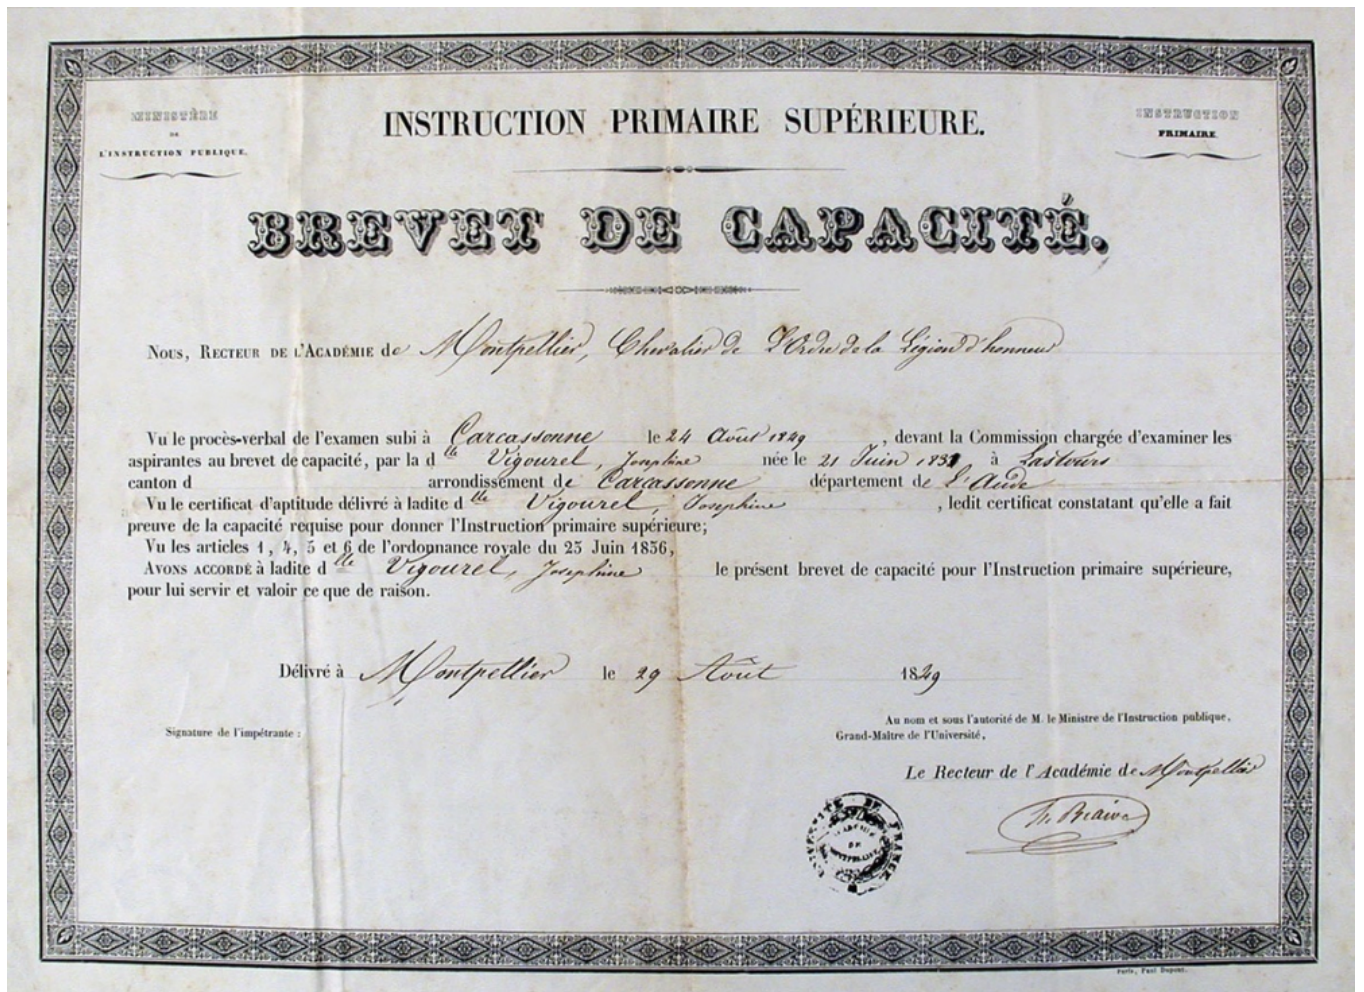 MINISTÈRE
DE
L'INSTRUCTION PUBLIQUE.
INSTRUCTION PRIMAIRE SUPÉRIEURE.
INSTRUCTION
PRIMAIRE
BREVET DE CAPACITÉ.
NOUS, RECTEUR DE L'ACADÉMIE de Montpellier, Chevalier de L'Ordre de la Légion d'honneur
Vu le procès-verbal de l'examen subi à Carcassonne le 24 Août 1849, devant la Commission chargée d'examiner les
aspirantes au brevet de capacité, par la dlle Vigourel, Josephine née le 21 Juin 1831 à Lastours
canton d arrondissement de Carcassonne département de L'Aude
Vu le certificat d'aptitude délivré à ladite dlle Vigourel, Josephine, ledit certificat constatant qu'elle a fait
preuve de la capacité requise pour donner l'Instruction primaire supérieure;
Vu les articles 1, 4, 5 et 6 de l'ordonnance royale du 23 Juin 1836,
AVONS ACCORDÉ à ladite dlle Vigourel, Josephine le présent brevet de capacité pour l'Instruction primaire supérieure,
pour lui servir et valoir ce que de raison.
Délivré à Montpellier le 29 Août 1849
Signature de l'impétrante :
Au nom et sous l'autorité de M. le Ministre de l'Instruction publique,
Grand-Maître de l'Université,
Le Recteur de l'Académie de Montpellier
UNIVERSITÉ DE FRANCE
ACADÉMIE
DE
MONTPELLIER
Paris, Paul Dupont.